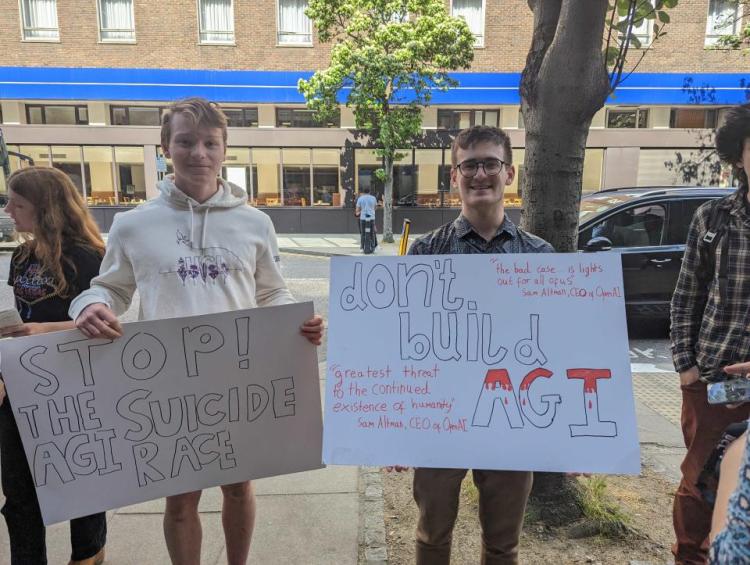 STOP!
THE SUICIDE
AGI RACE
don't
build
AGI
"the bad case is lights
out for all of us"
Sam Altman, CEO of OpenAI
"greatest threat
to the continued
existence of humanity"
Sam Altman, CEO of OpenAI